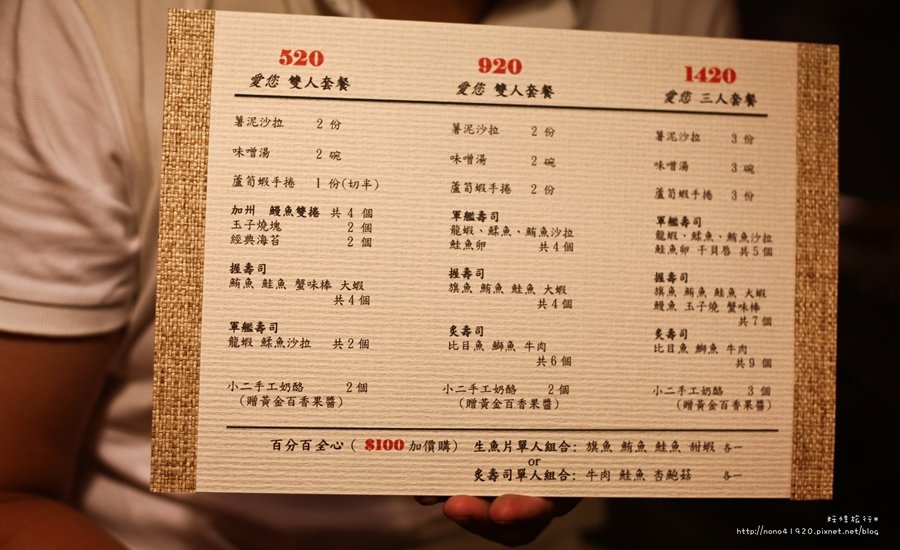 520
愛您 雙人套餐
薯泥沙拉 2 份
味噌湯 2 碗
蘆筍蝦手捲 1 份(切半)
加州 鰻魚雙捲 共 4 個
玉子燒塊 2 個
經典海苔 2 個
握壽司
鮪魚 鮭魚 蟹味棒 大蝦
共 4 個
軍艦壽司
龍蝦 鰇魚沙拉 共 2 個
小二手工奶酪 2 個
(贈黃金百香果醬)
920
愛您 雙人套餐
薯泥沙拉 2 份
味噌湯 2 碗
蘆筍蝦手捲 2 份
軍艦壽司
龍蝦、鰇魚、鮪魚沙拉
鮭魚卵 共 4 個
握壽司
旗魚 鮪魚 鮭魚 大蝦
共 4 個
炙壽司
比目魚 鰤魚 牛肉
共 6 個
小二手工奶酪 2 個
(贈黃金百香果醬)
1420
愛您 三人套餐
薯泥沙拉 3 份
味噌湯 3 碗
蘆筍蝦手捲 3 份
軍艦壽司
龍蝦、鰇魚、鮪魚沙拉
鮭魚卵 干貝唇 共 5 個
握壽司
旗魚 鮪魚 鮭魚 大蝦
鰻魚 玉子燒 蟹味棒
共 7 個
炙壽司
比目魚 鰤魚 牛肉
共 9 個
小二手工奶酪 3 個
(贈黃金百香果醬)
百分百全心 ( $100 加價購) 生魚片單人組合: 旗魚 鮪魚 鮭魚 甜蝦 各一
or
炙壽司單人組合: 牛肉 鮭魚 杏鮑菇 各一
http://nono41920.pixnet.net/blog